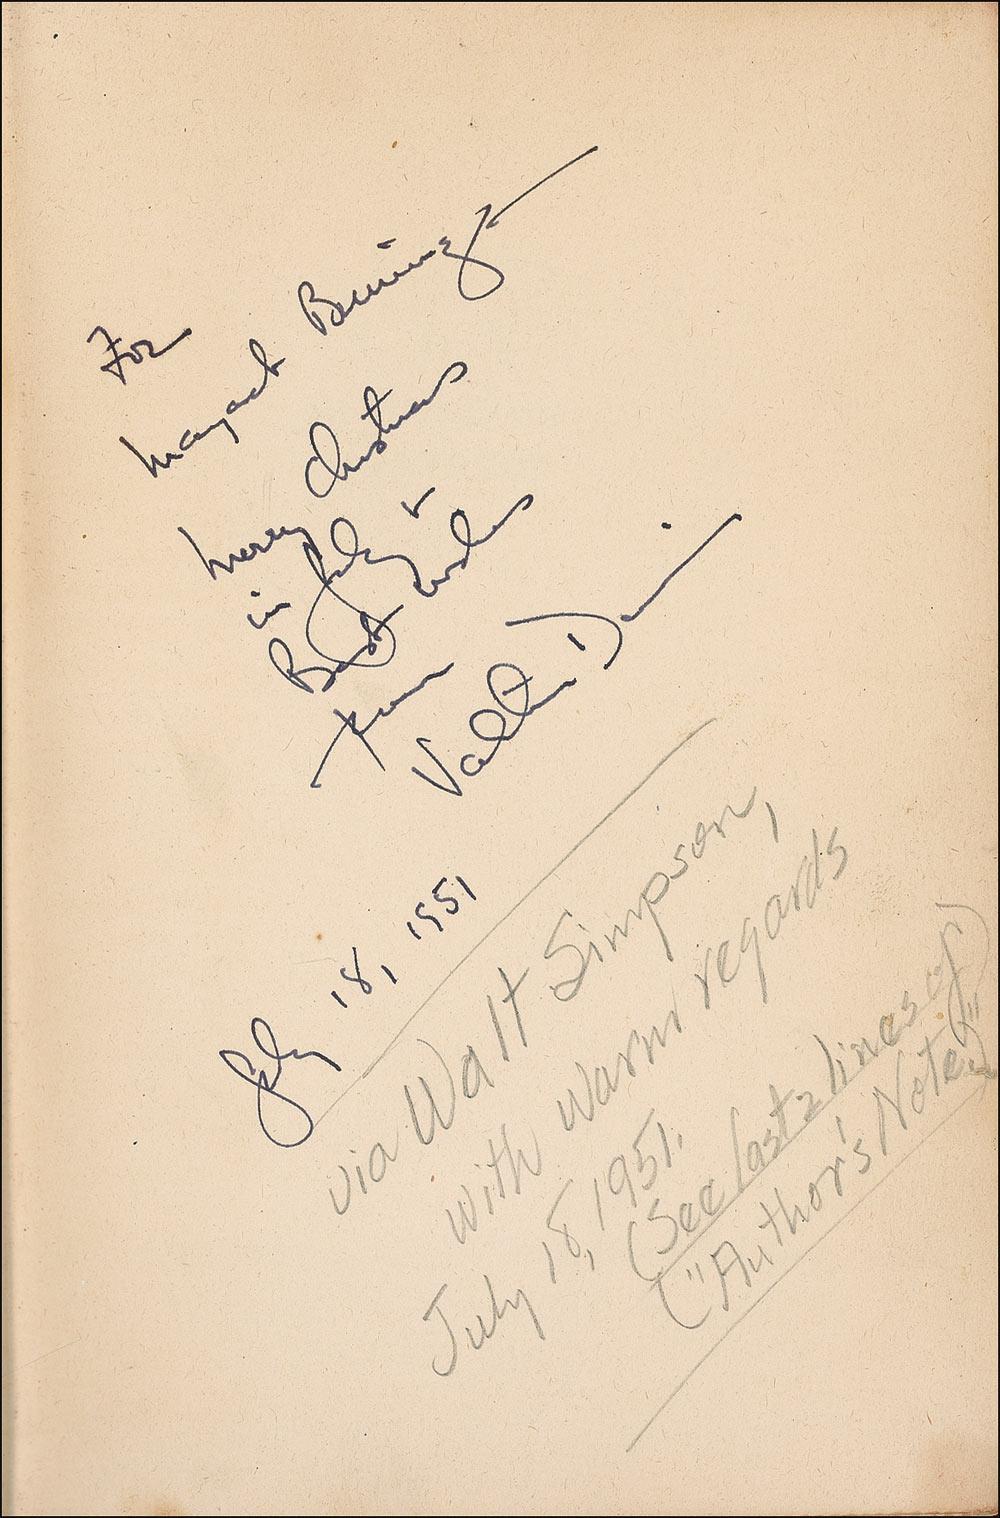 For
Margaret
Merry Christmas
in July &
Best wishes
from
Valentine Davies
July 18, 1951
via Walt Simpson,
with warm regards
July 18, 1951.
(See last 2 lines of)
("Author's Note")